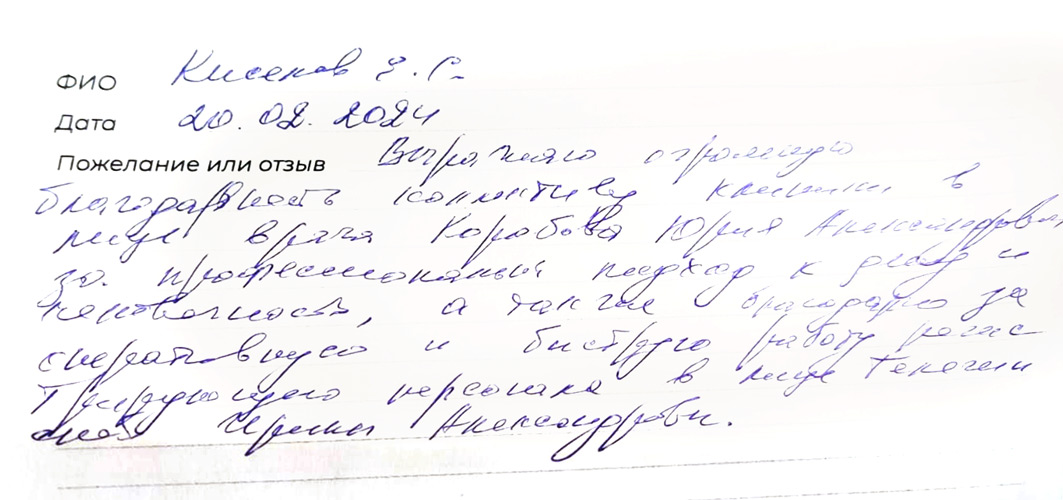 ФИО Кисенков Е. С.
Дата 20.02.2024
Пожелание или отзыв Выражаю огромную
благодарность коллективу клиники в
лице врача Коробова Юрия Александрович
за профессиональный подход к делу и
человечность, а также благодарю за
оперативную и быструю работу регис
трирующего персонала в лице
Ирины Александровн.